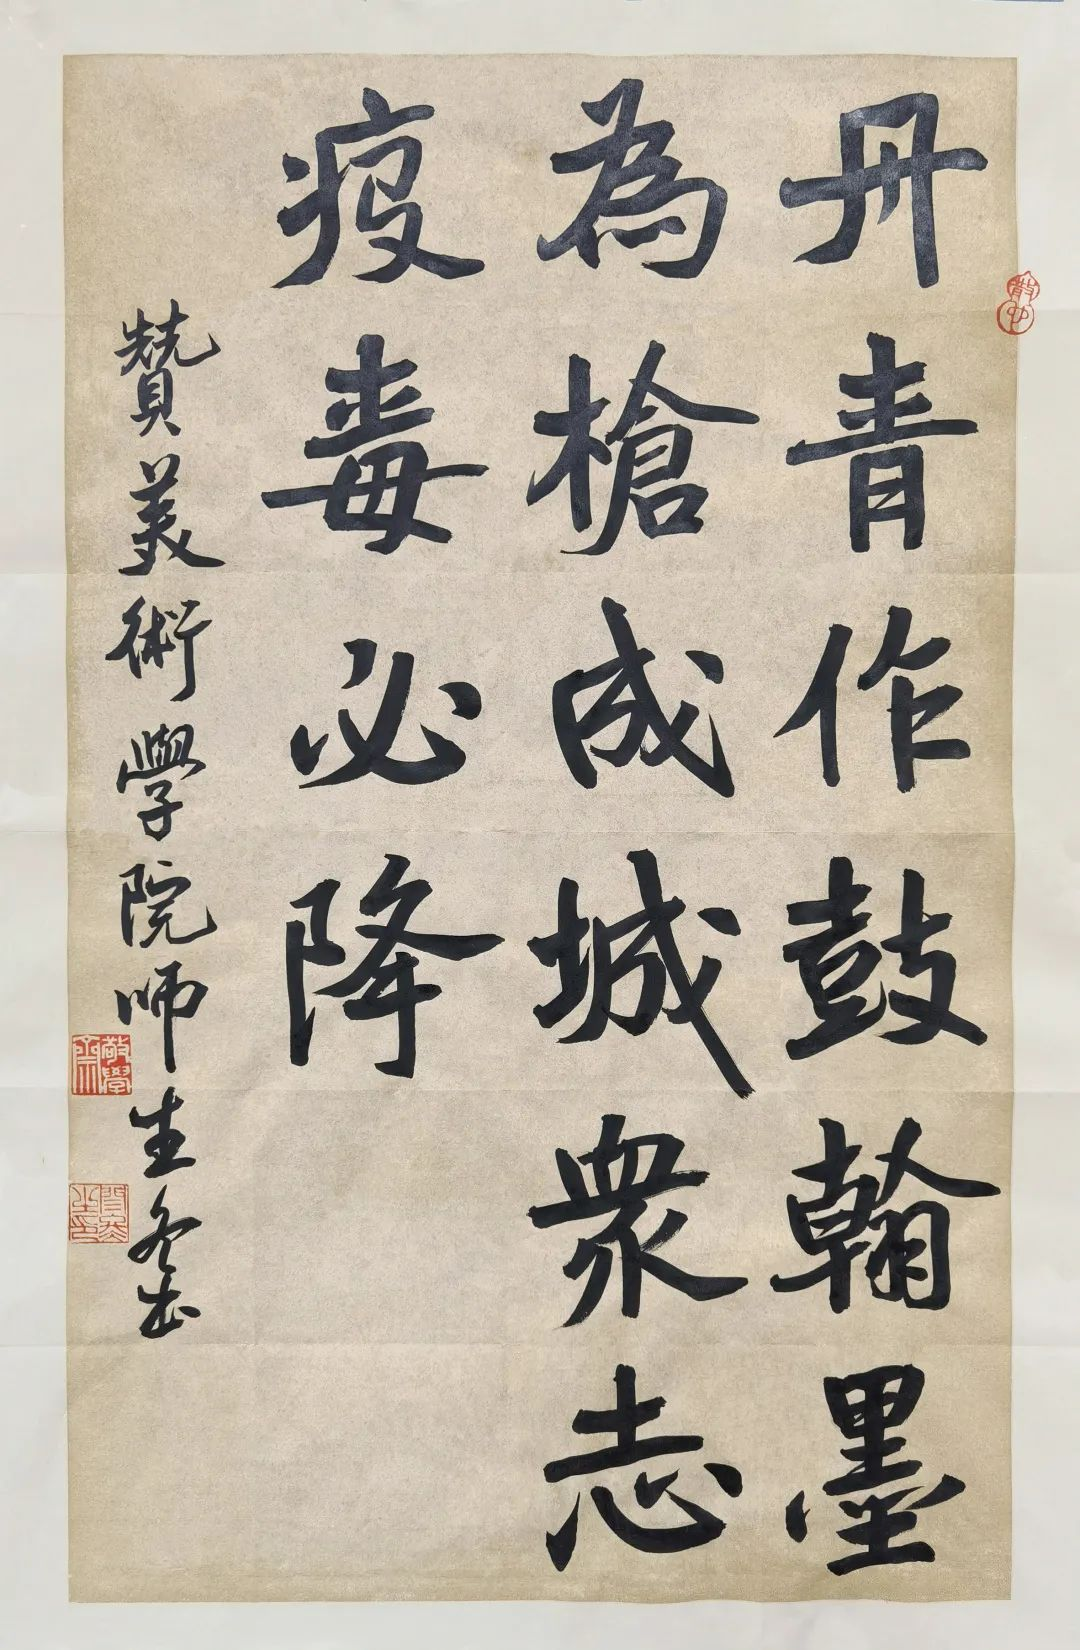 丹青作鼓翰墨
為槍成城衆志
疫毒必降
贊美術學院師生
敬學齋